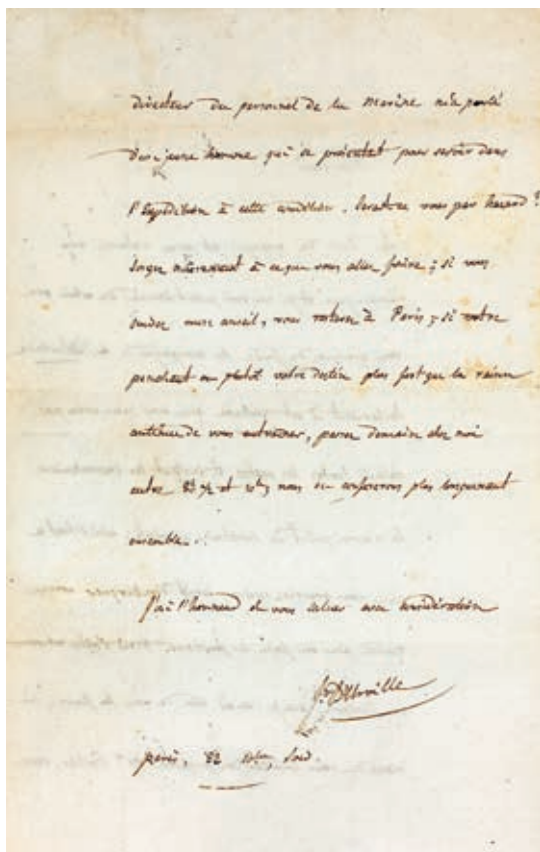 directeur du personnel de la Marine m'a parlé
d'un jeune homme qui se présentait pour servir dans
l'Expédition à cette condition. Seratce vous par hasard ?
Songez mûrement à ce que vous allez faire ; si vous
mon conseil, vous resterez à Paris ; si votre
penchant ou plutôt votre destin plus fort que la raison
continue de vous entraîner, passez demain chez moi
entre 8h ½ et 10h, nous en conférerons plus longuement
ensemble.
J'ai l'honneur de vous saluer avec considération
D'Urville
Paris, soir